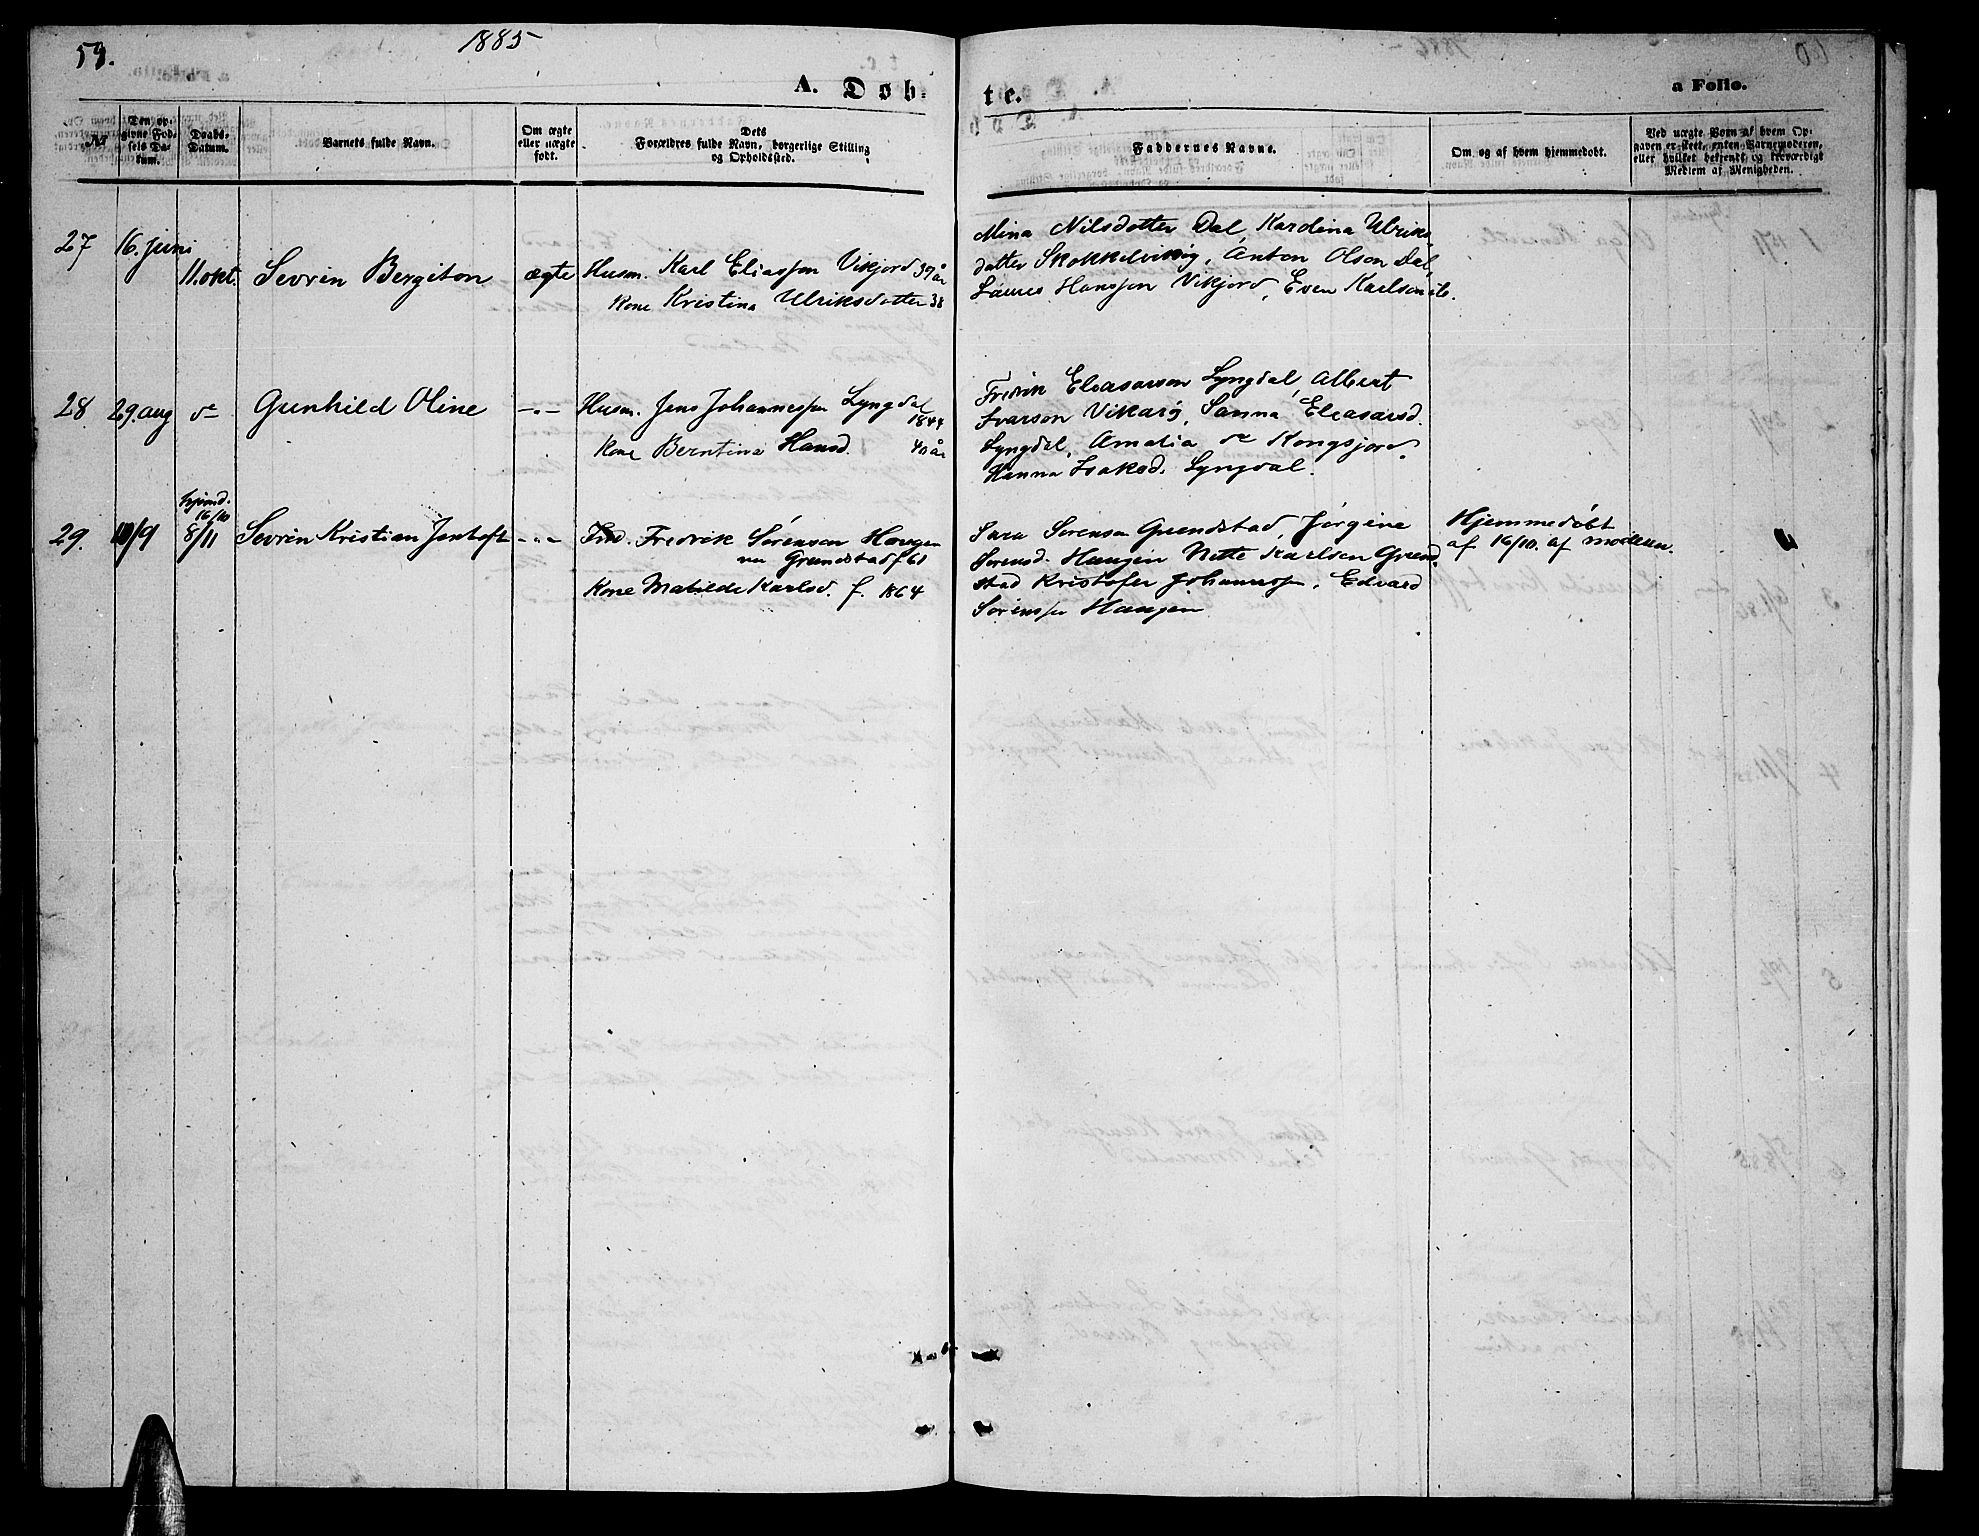 59.
1885
A. Døbte.
a Folio.
No
Den opgivne Fødsels Datum.
Daabs-Datum.
Barnets fulde Navn.
Om ægte eller uægte født.
Dets Forældres fulde Navn, borgerlige Stilling og Opholdssted.
Faddernes Navne.
Om og af hvem hjemmedøbt.
Ved uægte Børn af hvem Opgaven er skeet, enten Barnemoderen, eller hvilket bekjendt og troværdigt Medlem af Menigheden.
27 16. juni 11. okt. Sevrin Bergiton ægte
Husm. Karl Eliassen Vikjord 39 år
Kone Kristina Ulriksdatter 38
Mina Nilsdotter Dal, Kardina Ulriks-
datter Skokkelvikøg, Anton Olson Dal,
Hansen Vikjord, Even Karlson ib.
28 29. aug do Gunhild Oline -"-
Husm. Jens Johannessen Lyngdal
1844
Kone Berntina Hansd. 40 år
Fredrik Eleasarson Lyngdal, Albert
Ivarson Vikarø, Sanna Eleasarsd.
Lyngdal, Amalia do Kongsjord
Hanna Isaksd. Lyngdal.
29. 10/9
hjemd.
16/10
8/11 Sevrin Kristian Jentoft -"-
Ind. Fredrik Sørensen Haugen
Grundstad f 61
Kone Matilde Karlsd. f. 1864
Sara Sørensen Grundstad, Jørgine
Sørensd. Haugen Nette Karlsen Grund-
stad Kristofer Johannessen, Edvard
Sørensen Haugen
Hjemmedøbt
af 16/10. af moderen.